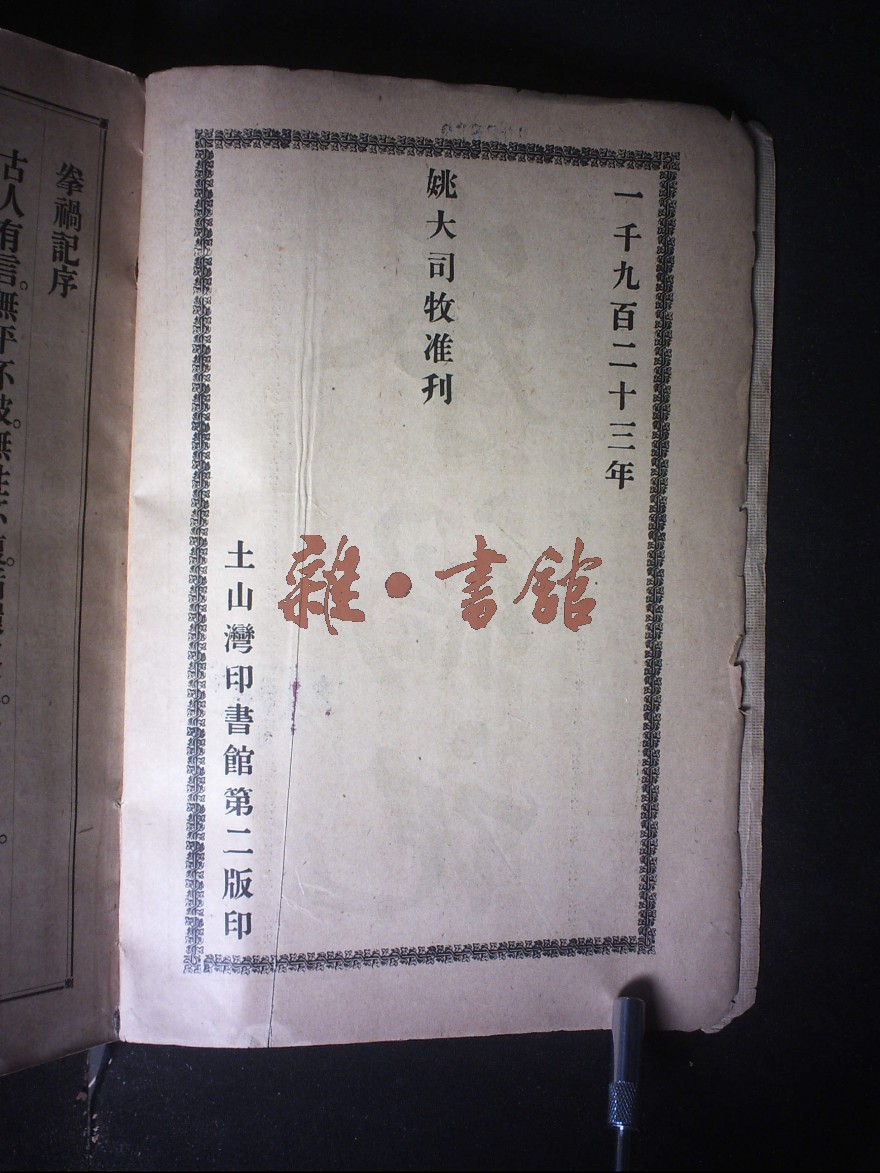 一千九百二十三年
姚大司牧准刊
土山灣印書館第二版印
雜·書館
拳禍記序
古人有言。無平不陂。無往不復。